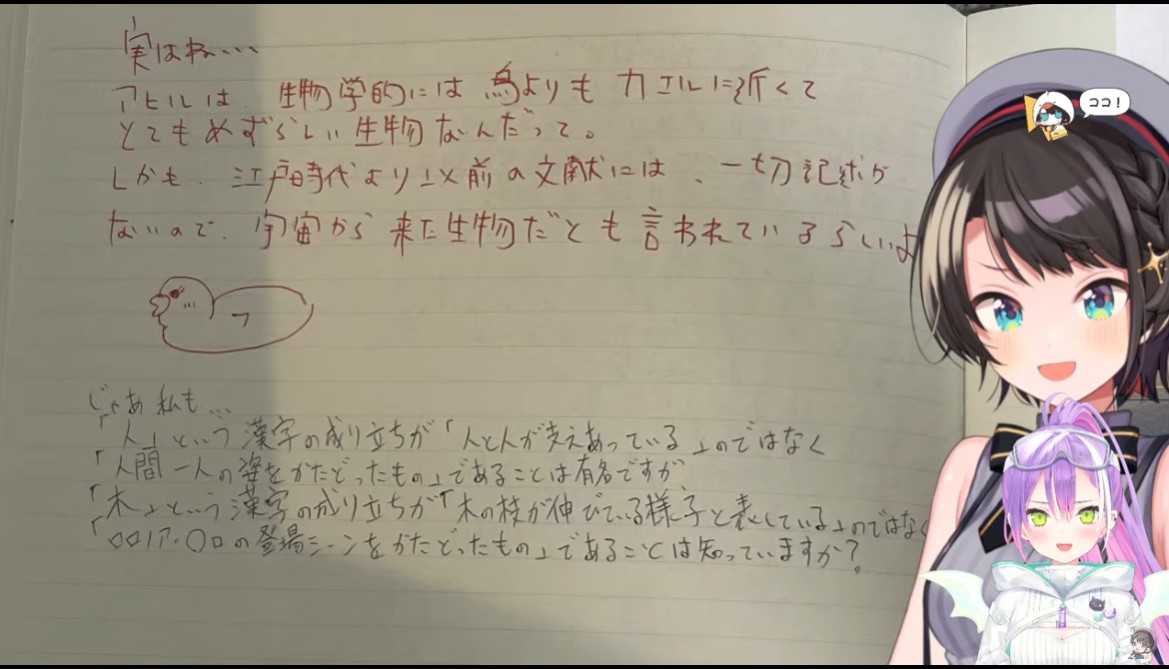 実はね...
アヒルは、生物学的には鳥よりもカエルに近くて
とてもめずらしい生物なんだって。
しかも、江戸時代より以前の文献には、一切記述が
ないので、宇宙から来た生物だとも言われているらしいよ
ココ!
じゃあ私も...
「人」という漢字の成り立ちが「人と人が支えあっている」のではなく
「人間一人の姿をかたどったもの」であることは有名ですが、
「木」という漢字の成り立ちが「木の枝が伸びている様子を表している」のではなく
の登場シーンをかたどったもの」であることは知っていますか?